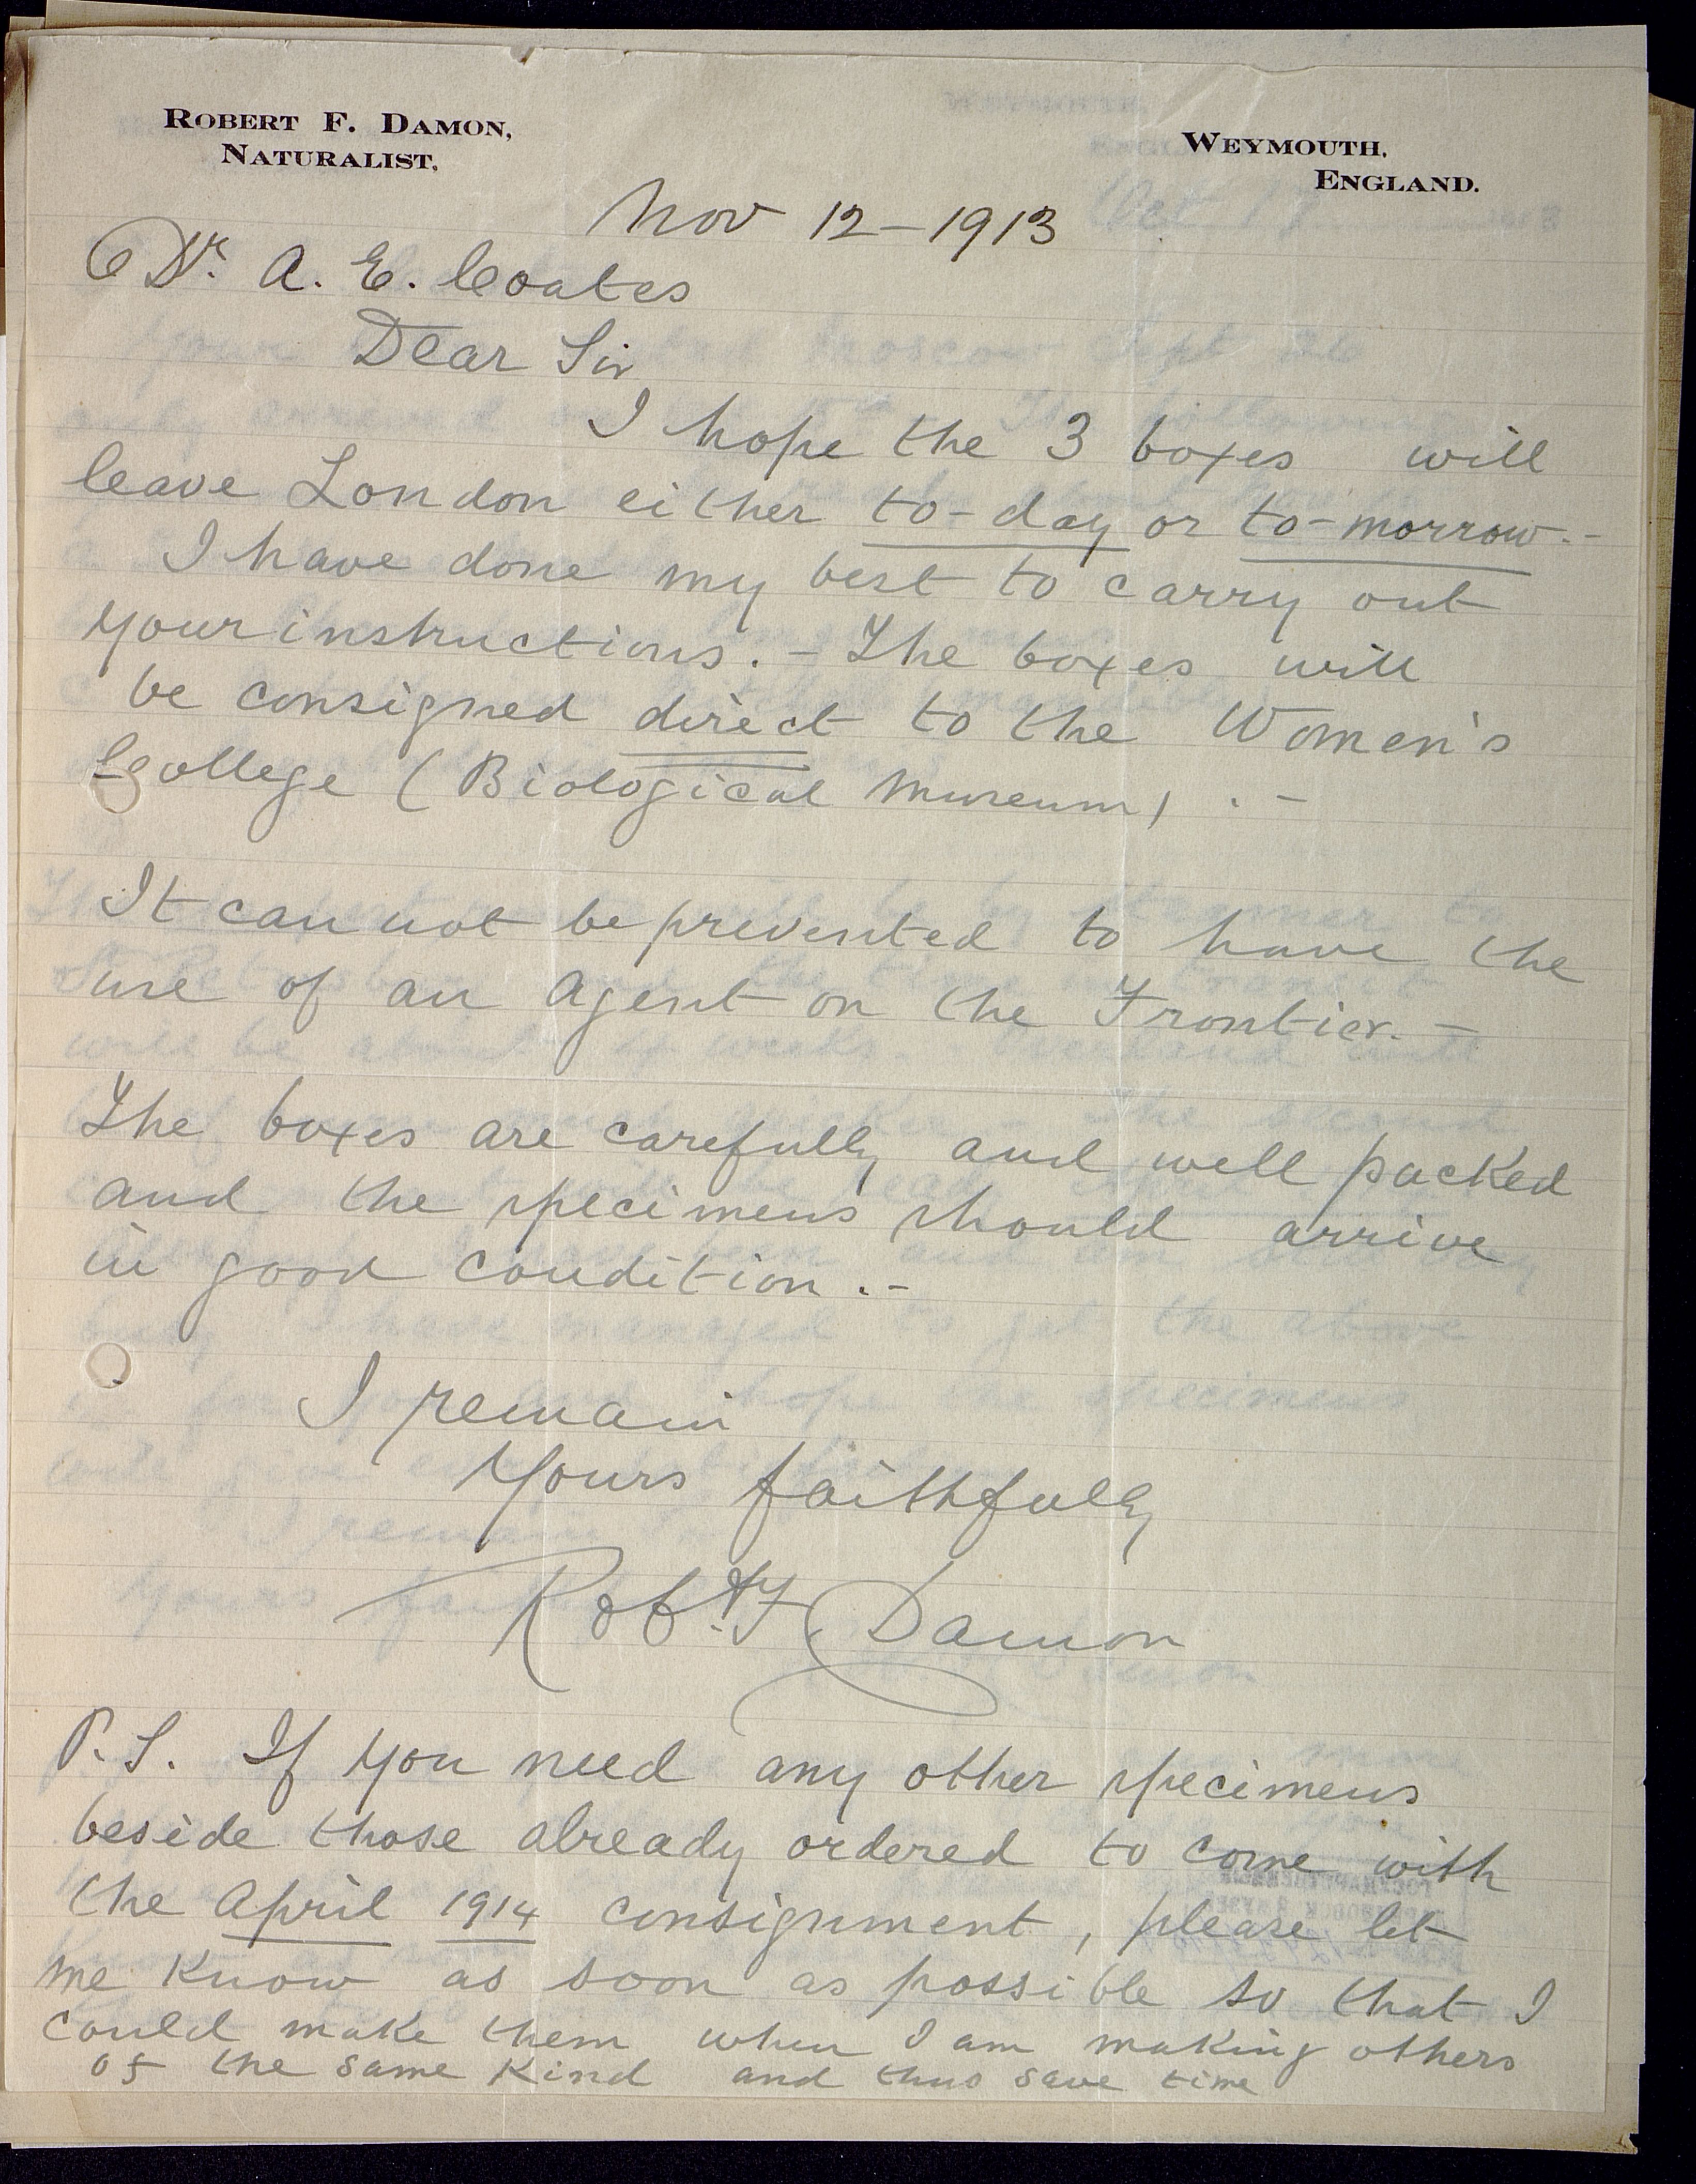 ROBERT F. DAMON,
NATURALIST,
WEYMOUTH,
ENGLAND.
Nov 12-1913
Dr. A. E. Coates
Dear Sir
I hope the 3 boxes will
leave London either to-day or to-morrow.-
I have done my best to carry out
your instructions. - The boxes will
be consigned direct to the Women's
College (Biological Museum) . -
It can not be prevented to have the
use of an Agent on the Frontier. -
The boxes are carefully and well packed
and the specimens should arrive
in good condition . -
I remain
Yours faithfully
Robt. F. Damon
P. S. If you need any other specimens
beside those already ordered to come with
the April 1914 consignment, please let
me know as soon as possible so that I
could make them when I am making others
of the same kind and thus save time